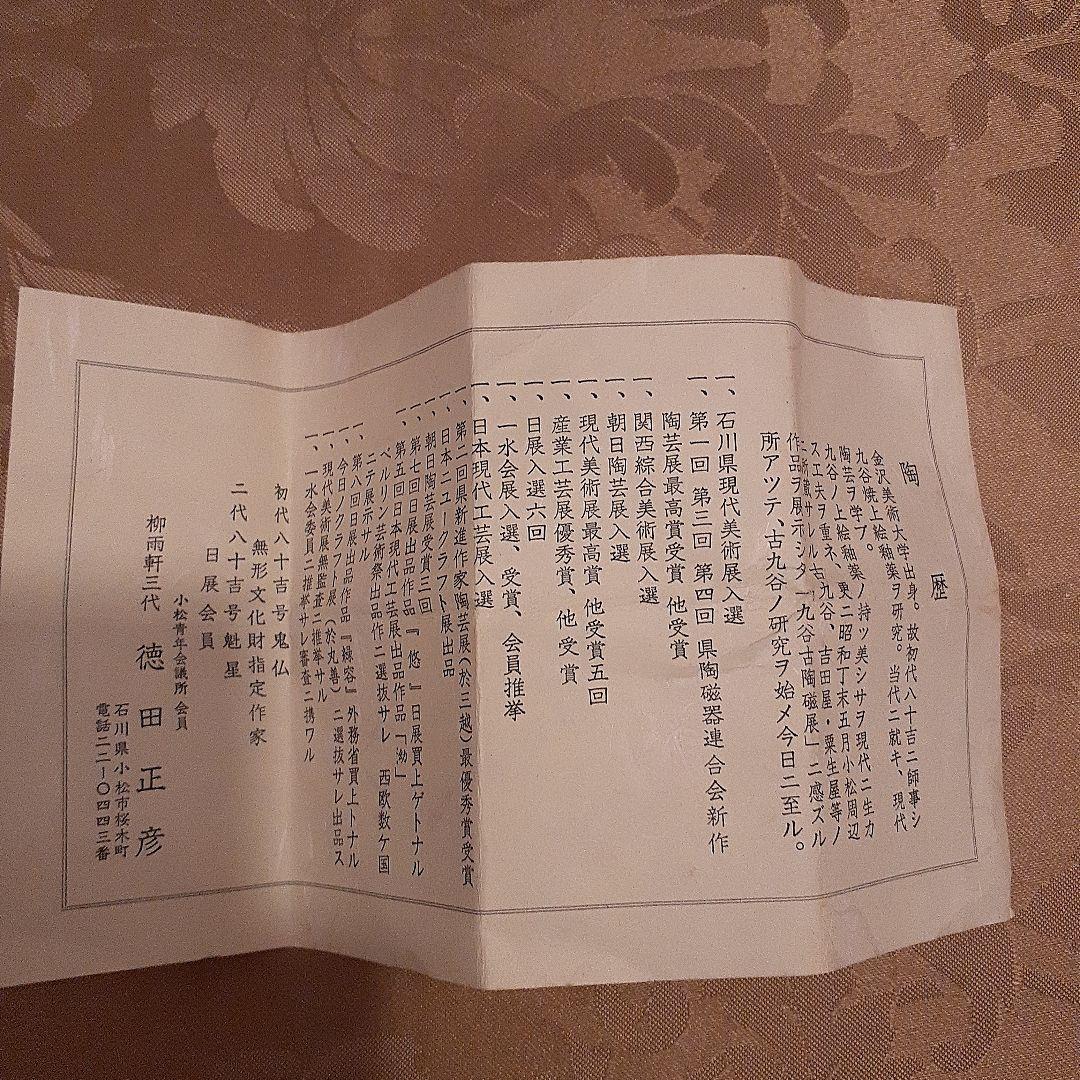 陶歴
金沢美術大学出身。故初代八十吉ニ師事シ
九谷焼上絵釉薬ヲ研究。当代ニ就キ、現代
陶芸ヲ学ブ。
九谷ノ上絵釉薬ノ持ツ美シサヲ現代ニ生カ
ス工夫ヲ重ネ、更ニ昭和丁未五月小松周辺
ニ所蔵サルル古九谷、吉田屋・粟生屋等ノ
作品ヲ展示シタ「九谷古陶磁展」ニ感ズル
所アツテ、古九谷ノ研究ヲ始メ今日ニ至ル。
一、石川県現代美術展入選
一、第一回 第三回 第四回 県陶磁器連合会新作
陶芸展最高賞受賞 他受賞
一、関西綜合美術展入選
一、朝日陶芸展入選
一、現代美術展最高賞 他受賞五回
一、産業工芸展優秀賞、他 受賞
一、日展入選六回
一、一水会展入選、受賞、会員推挙
一、日本現代工芸展入選
一、第二回県新進作家陶芸展(於三越)最優秀賞受賞
一、日本ニュークラフト展出品
一、朝日陶芸展受賞三回
一、第七回日展出品作品『悠』日展買上ゲトナル
一、第五回日本現代工芸展出品作品「泑」
ベルリン芸術祭出品作ニ選抜サレ 西欧数ケ国
ニテ展示サル
一、第八回日展出品作品『緑容』外務省買上トナル
一、今日ノクラフト展(於丸善)ニ選抜サレ出品ス
一、現代美術展無監査ニ推挙サル
一、一水会委員ニ推挙サレ審査ニ携ワル
初代八十吉号鬼仏
無形文化財指定作家
二代八十吉号魁星
日展会員
小松青年会議所会員
柳雨軒三代 徳田正彦
石川県小松市桜木町
電話二二―〇四四三番